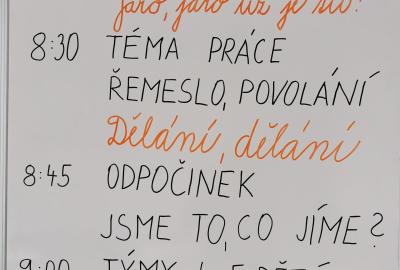 Jaro, jaro už je
8:30 TÉMA PRÁCE
ŘEMESLO, POVOLÁNÍ
Dělání, dělání
8:45 ODPOČINEK
JSME TO, CO JÍME?
9:00 TÝMY